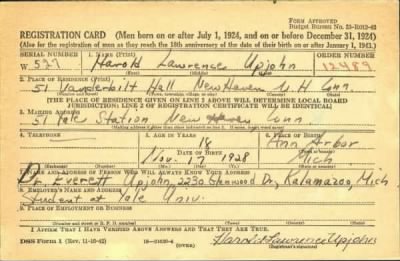 FORM APPROVED
Budget Bureau No. 33-R012-42
REGISTRATION CARD (Men born on or after July 1, 1924, and on or before December 31, 1924)
(Also for the registration of men as they reach the 18th anniversary of the date of their birth on or after January 1, 1943.)
SERIAL NUMBER 1. NAME (Print) ORDER NUMBER
W 527 Harold Lawrence Upjohn 12489
2. PLACE OF RESIDENCE (Print)
51 Vanderbilt Hall New Haven N.H. Conn.
[THE PLACE OF RESIDENCE GIVEN ON LINE 2 ABOVE WILL DETERMINE LOCAL BOARD
JURISDICTION; LINE 2 OF REGISTRATION CERTIFICATE WILL BE IDENTICAL]
3. MAILING ADDRESS
51 Yale Station New Haven Conn.
4. TELEPHONE 5. AGE IN YEARS 6. PLACE OF BIRTH
18 Ann Arbor
DATE OF BIRTH
Nov. 17 1928 Mich
7. NAME AND ADDRESS OF PERSON WHO WILL ALWAYS KNOW YOUR ADDRESS
Dr. Everett Upjohn, 2230 Glenwood Dr, Kalamazoo, Mich
8. EMPLOYER'S NAME AND ADDRESS
Student at Yale Univ.
9. PLACE OF EMPLOYMENT OR BUSINESS
I AFFIRM THAT I HAVE VERIFIED ABOVE ANSWERS AND THAT THEY ARE TRUE.
DSS Form 1 (Rev. 11-16-42) (OVER) Harold Lawrence Upjohn
(Registrant's signature)